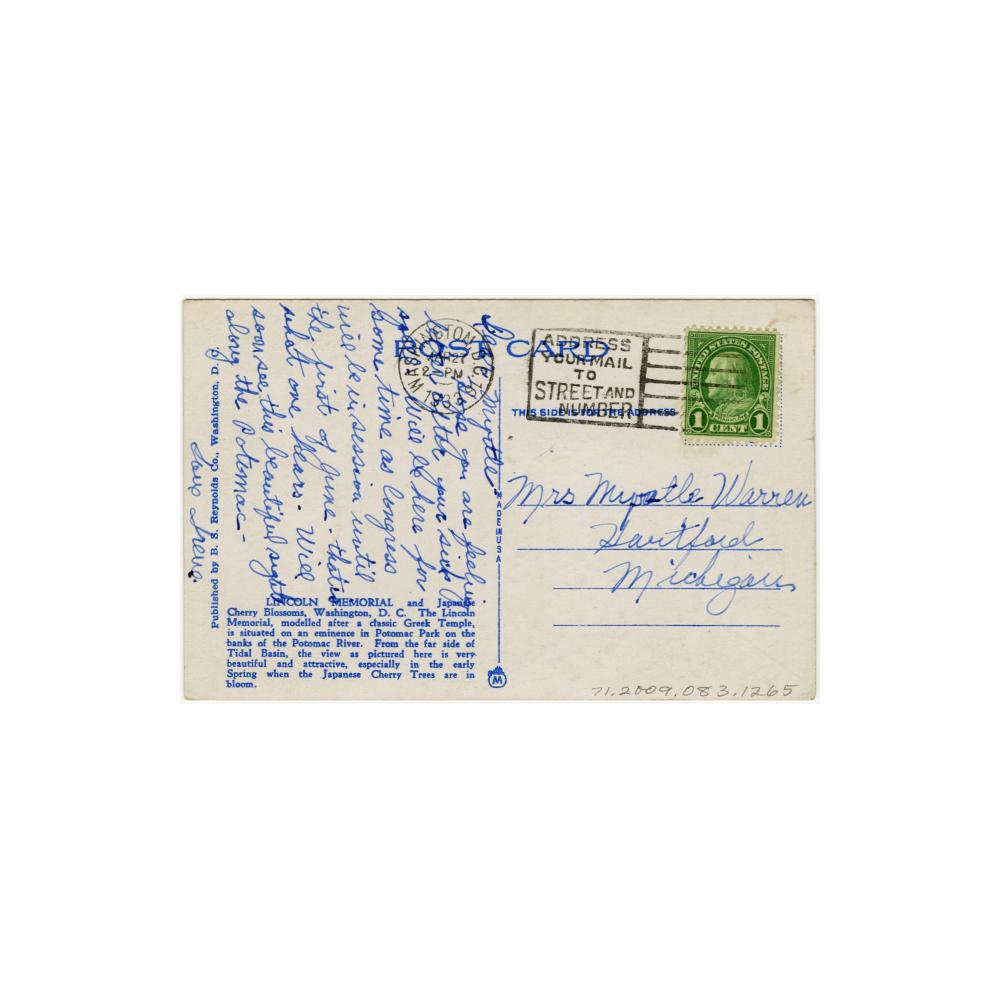 POST CARD
WASHINGTON, D.C.
MAR 27
2 - PM
1933
ADDRESS
YOUR MAIL
TO
STREET AND
NUMBER
UNITED STATES POSTAGE
FRANKLIN
1 CENT 1
THIS SIDE IS FOR THE ADDRESS
Myrtle,
you are feeling
after your sick
Will be here for
some time as Congress
will be in session until
the first of June - thats
what one hears. Will
soon see this beautiful sight
along the Potomac -
Love Irene.
Mrs Myrtle Warren
Hartford
Michigan
MADE IN USA
M
Published by B. S. Reynolds Co., Washington, D. C.
LINCOLN MEMORIAL and Japanese
Cherry Blossoms, Washington, D. C. The Lincoln
Memorial, modelled after a classic Greek Temple,
is situated on an eminence in Potomac Park on the
banks of the Potomac River. From the far side of
Tidal Basin, the view as pictured here is very
beautiful and attractive, especially in the early
Spring when the Japanese Cherry Trees are in
bloom.
71.2009.083.1265